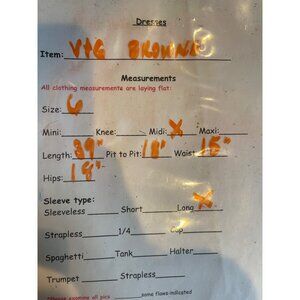 Dresses
Item: VTG BROWNE
Measurements
All clothing measurements are laying flat:
Size: 6
Mini: Knee: Midi: X Maxi:
Length: 39" Pit to Pit: 18" Waist 15"
Hips: 18"
Sleeve type:
Sleeveless Short Long X
Strapless 1/4 Cap
Spaghetti Tank Halter
Trumpet Strapless
Please examine all pics some flaws indicated